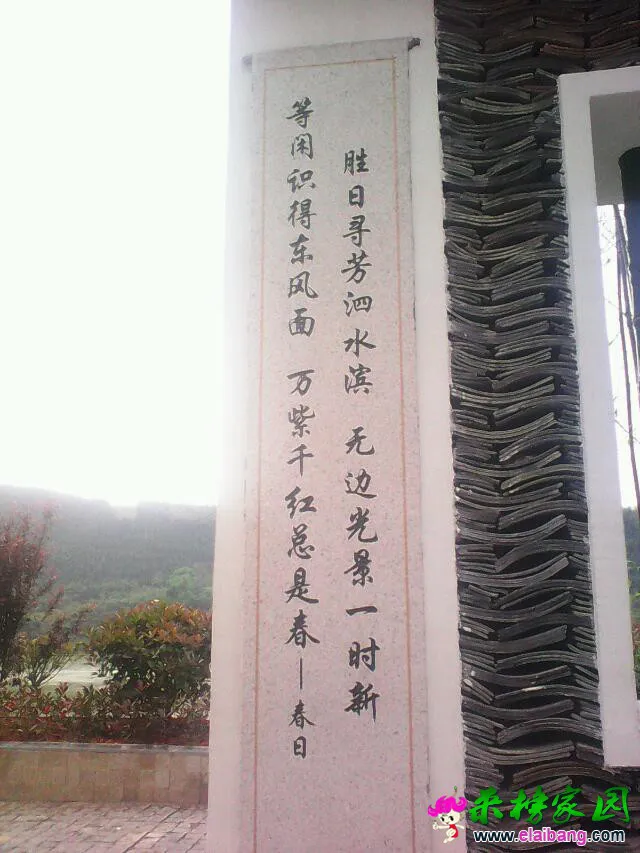 胜日寻芳泗水滨 无边光景一时新
等闲识得东风面 万紫千红总是春—春日
来榜家园
www.elaibang.com